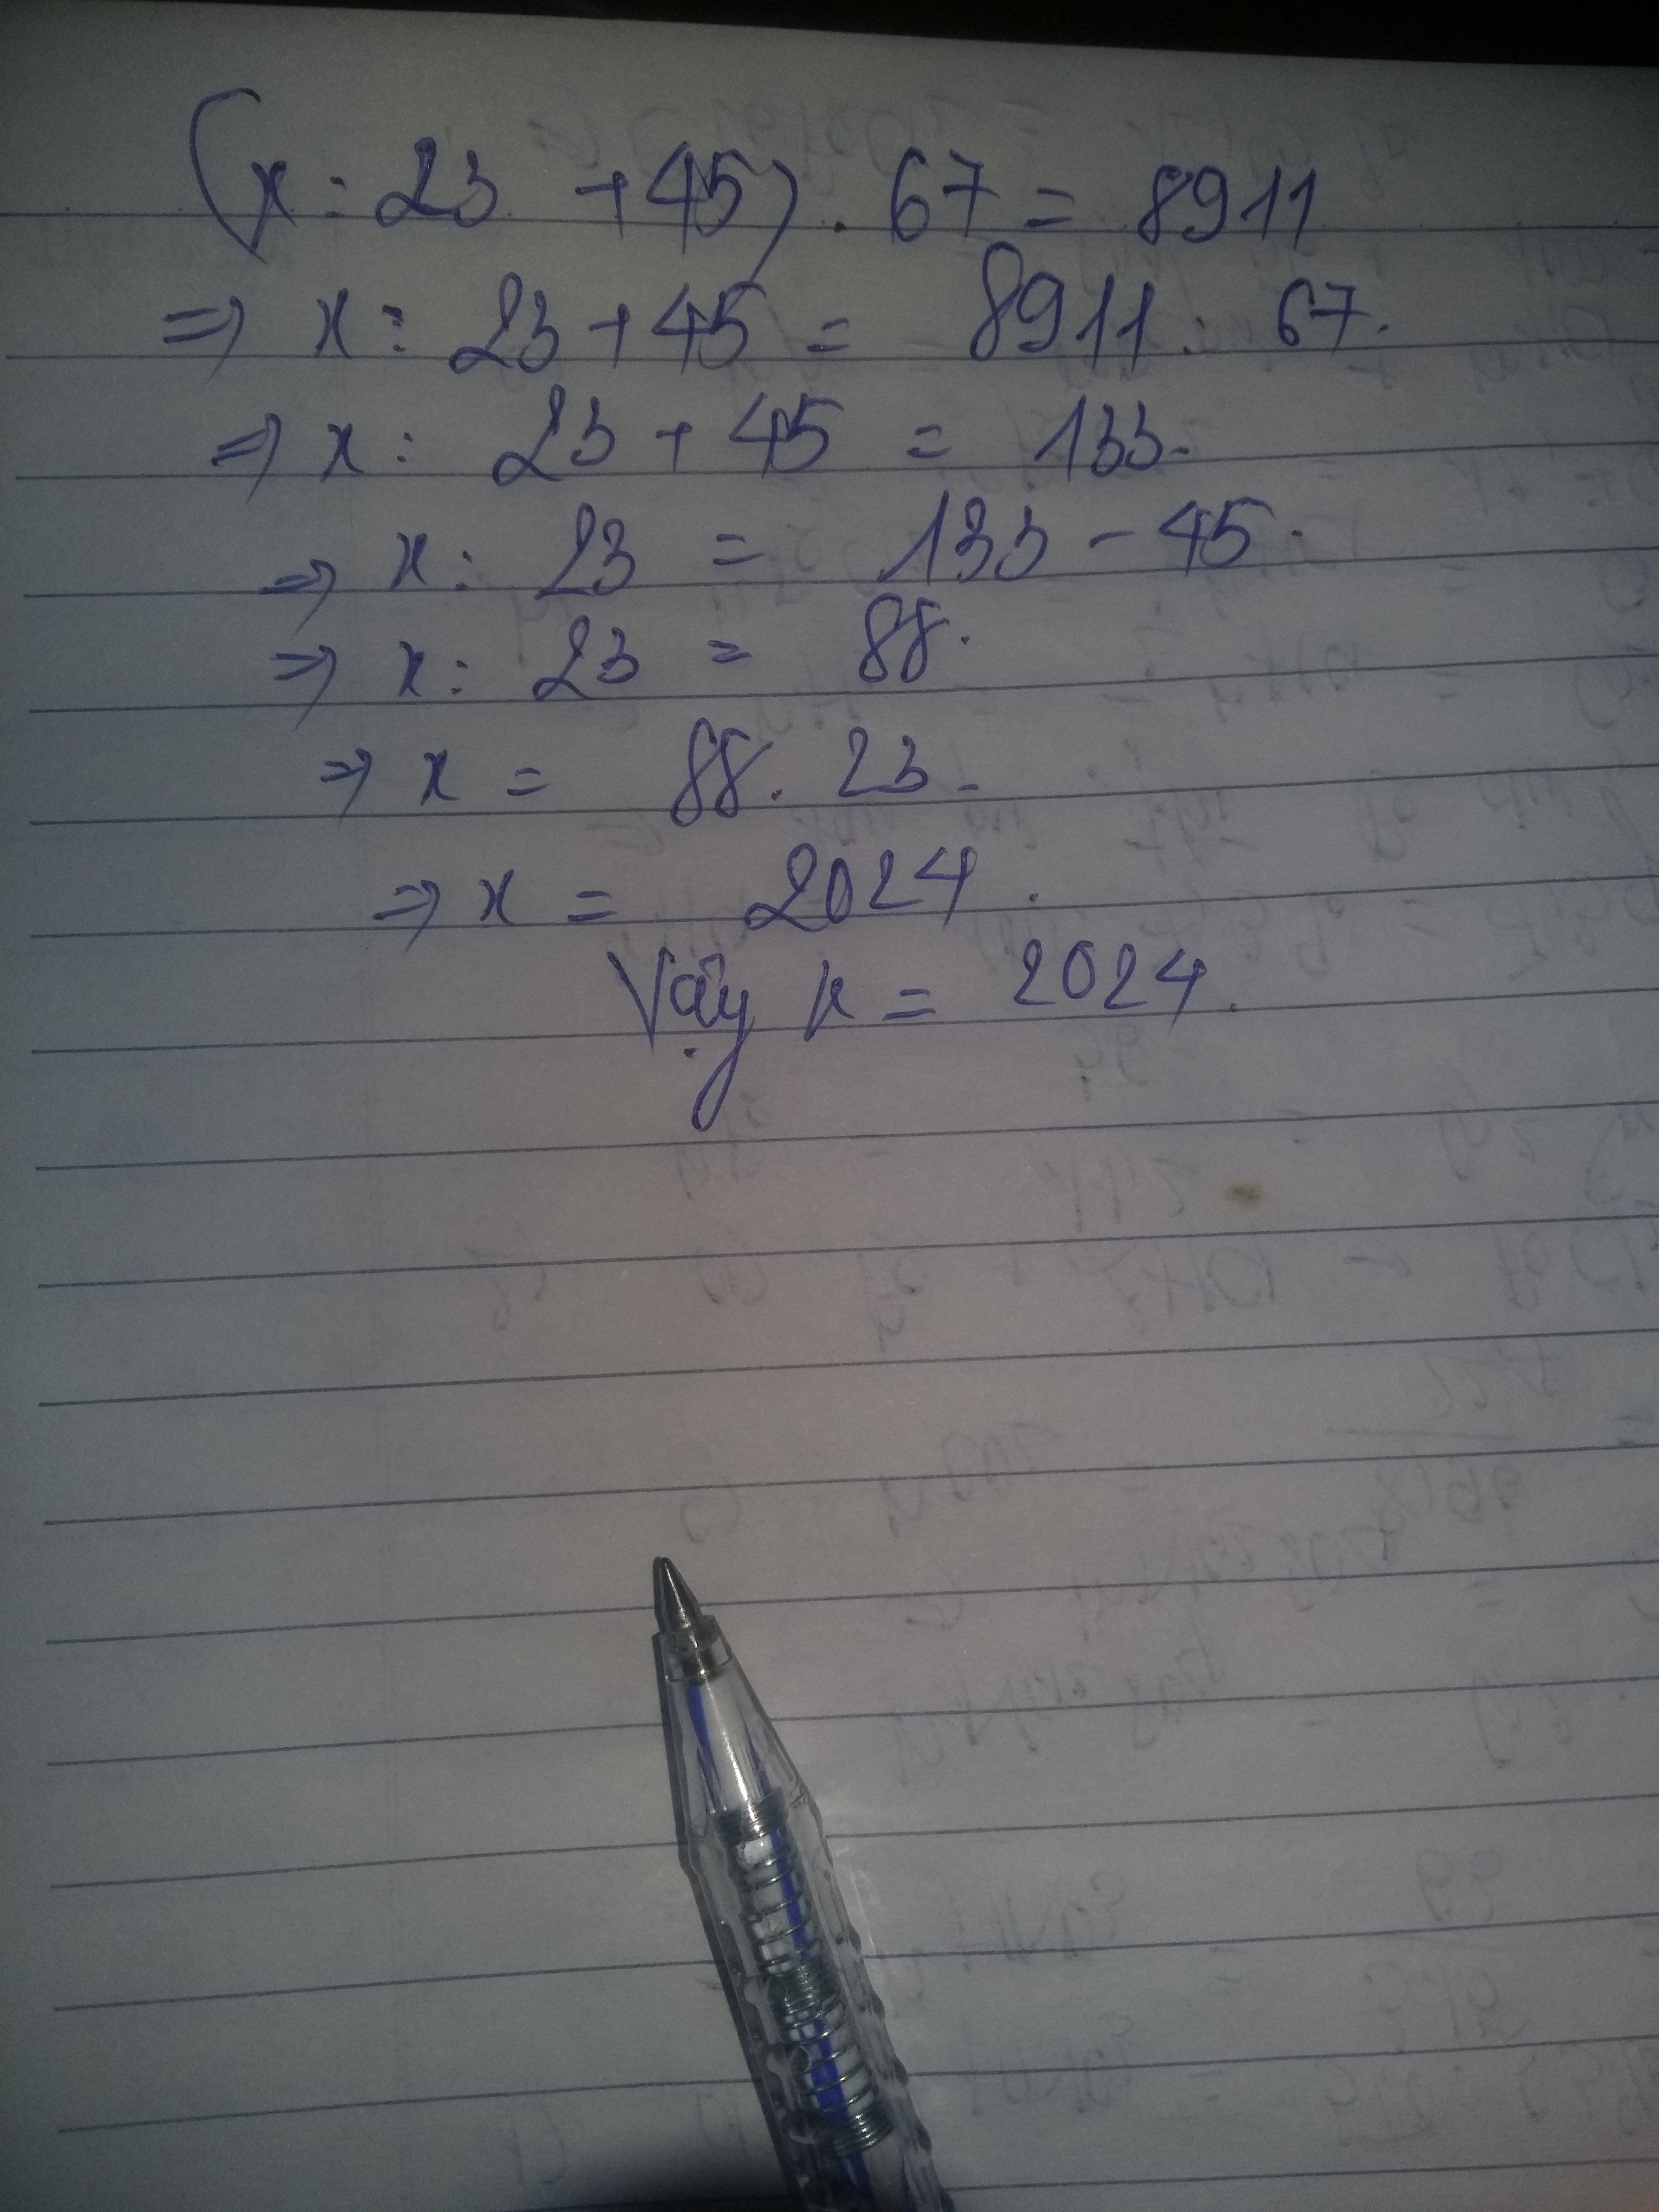 (x : 23 + 45) . 67 = 8911
=> x : 23 + 45 = 8911 : 67.
=> x : 23 + 45 = 133.
=> x : 23 = 133 - 45.
=> x : 23 = 88.
=> x = 88. 23.
=> x = 2024.
Vậy x = 2024.